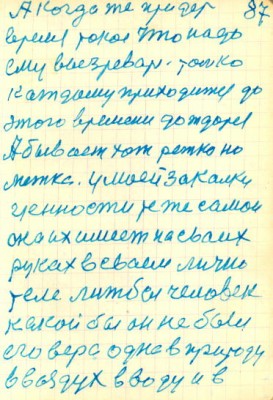 А когда же придет 87
время такое что надо
ему вызревар. только
каждому приходится до
этого времени дождатся
А бывает хот ретко но
метко. У моей закалки
ценности те же самои
она их имеет на сваих
руках в сваем лично
теле лиж бы человек
какой бы он не был
его вера одна в природу
в воздух в воду и в